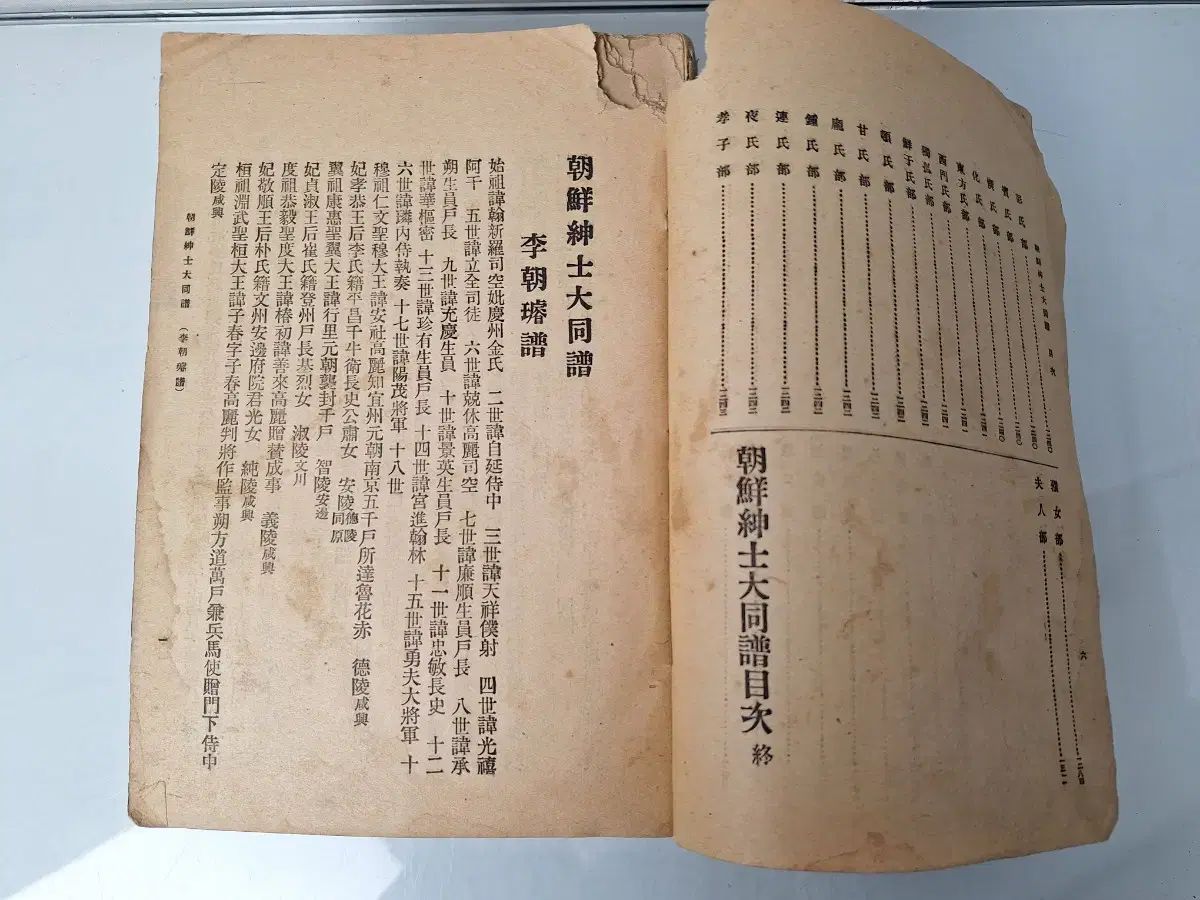 朝鮮紳士大同譜 目次
氏部
氏部
氏部
化氏部
東方氏部
西門氏部
獨孤氏部
鮮于氏部
頓氏部
甘氏部
龐氏部
鍾氏部
連氏部
夜氏部
孝子部
女部
夫人部
六
朝鮮紳士大同譜目次 終
朝鮮紳士大同譜
李朝璿譜
始祖諱翰新羅司空妣慶州金氏 二世諱自延侍中 三世諱天祥僕射 四世諱光禧
阿干 五世諱立全司徒 六世諱兢休高麗司空 七世諱廉順生員戶長 八世諱承
朔生員戶長 九世諱充慶生員 十世諱景英生員戶長 十一世諱忠敏長史 十二
世諱華樞密 十三世諱珍有生員戶長 十四世諱宮進翰林 十五世諱勇夫大將軍 十
六世諱璘內侍執奏 十七世諱陽茂將軍 十八世
穆祖仁文聖穆大王諱安社高麗知宜州元朝南京五千戶所達魯花赤 德陵咸興
妃孝恭王后李氏籍平昌千牛衛長史公肅女 安陵德陵同原
翼祖康惠聖翼大王諱行里元朝襲封千戶 智陵安邊
妃貞淑王后崔氏籍登州戶長基烈女 淑陵文川
度祖恭毅聖度大王諱椿初諱善來高麗贈贊成事 義陵咸興
妃敬順王后朴氏籍文州安邊府院君光女 純陵咸興
桓祖淵武聖桓大王諱子春字子春高麗判將作監事朔方道萬戶兼兵馬使贈門下侍中
定陵咸興
朝鮮紳士大同譜 (李朝璿譜)
一